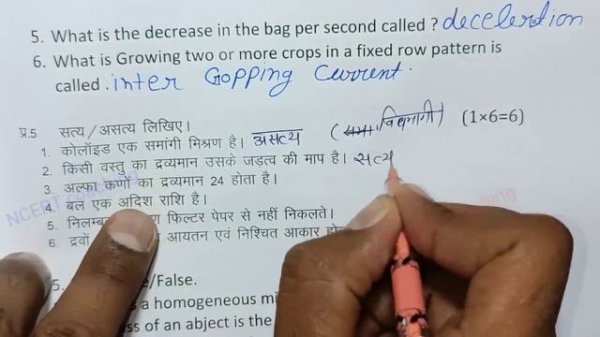 5. What is the decrease in the bag per second called ? decelertion
6. What is Growing two or more crops in a fixed row pattern is
called . inter Gopping Current.
प्र.5 सत्य/असत्य लिखिए। (1×6=6)
1. कोलॉइड एक समांगी मिश्रण है। असत्य (विषमांगी)
2. किसी वस्तु का द्रव्यमान उसके जड़त्व की माप है। सत्य
3. अल्फा कणों का द्रव्यमान 24 होता है।
4. बल एक अदिश राशि है।
5. निलम्ब फिल्टर पेपर से नहीं निकलते।
6. द्रवों आयतन एवं निश्चित आकार
5. e/False.
a homogeneous mi
ss of an abject is the
NCERT